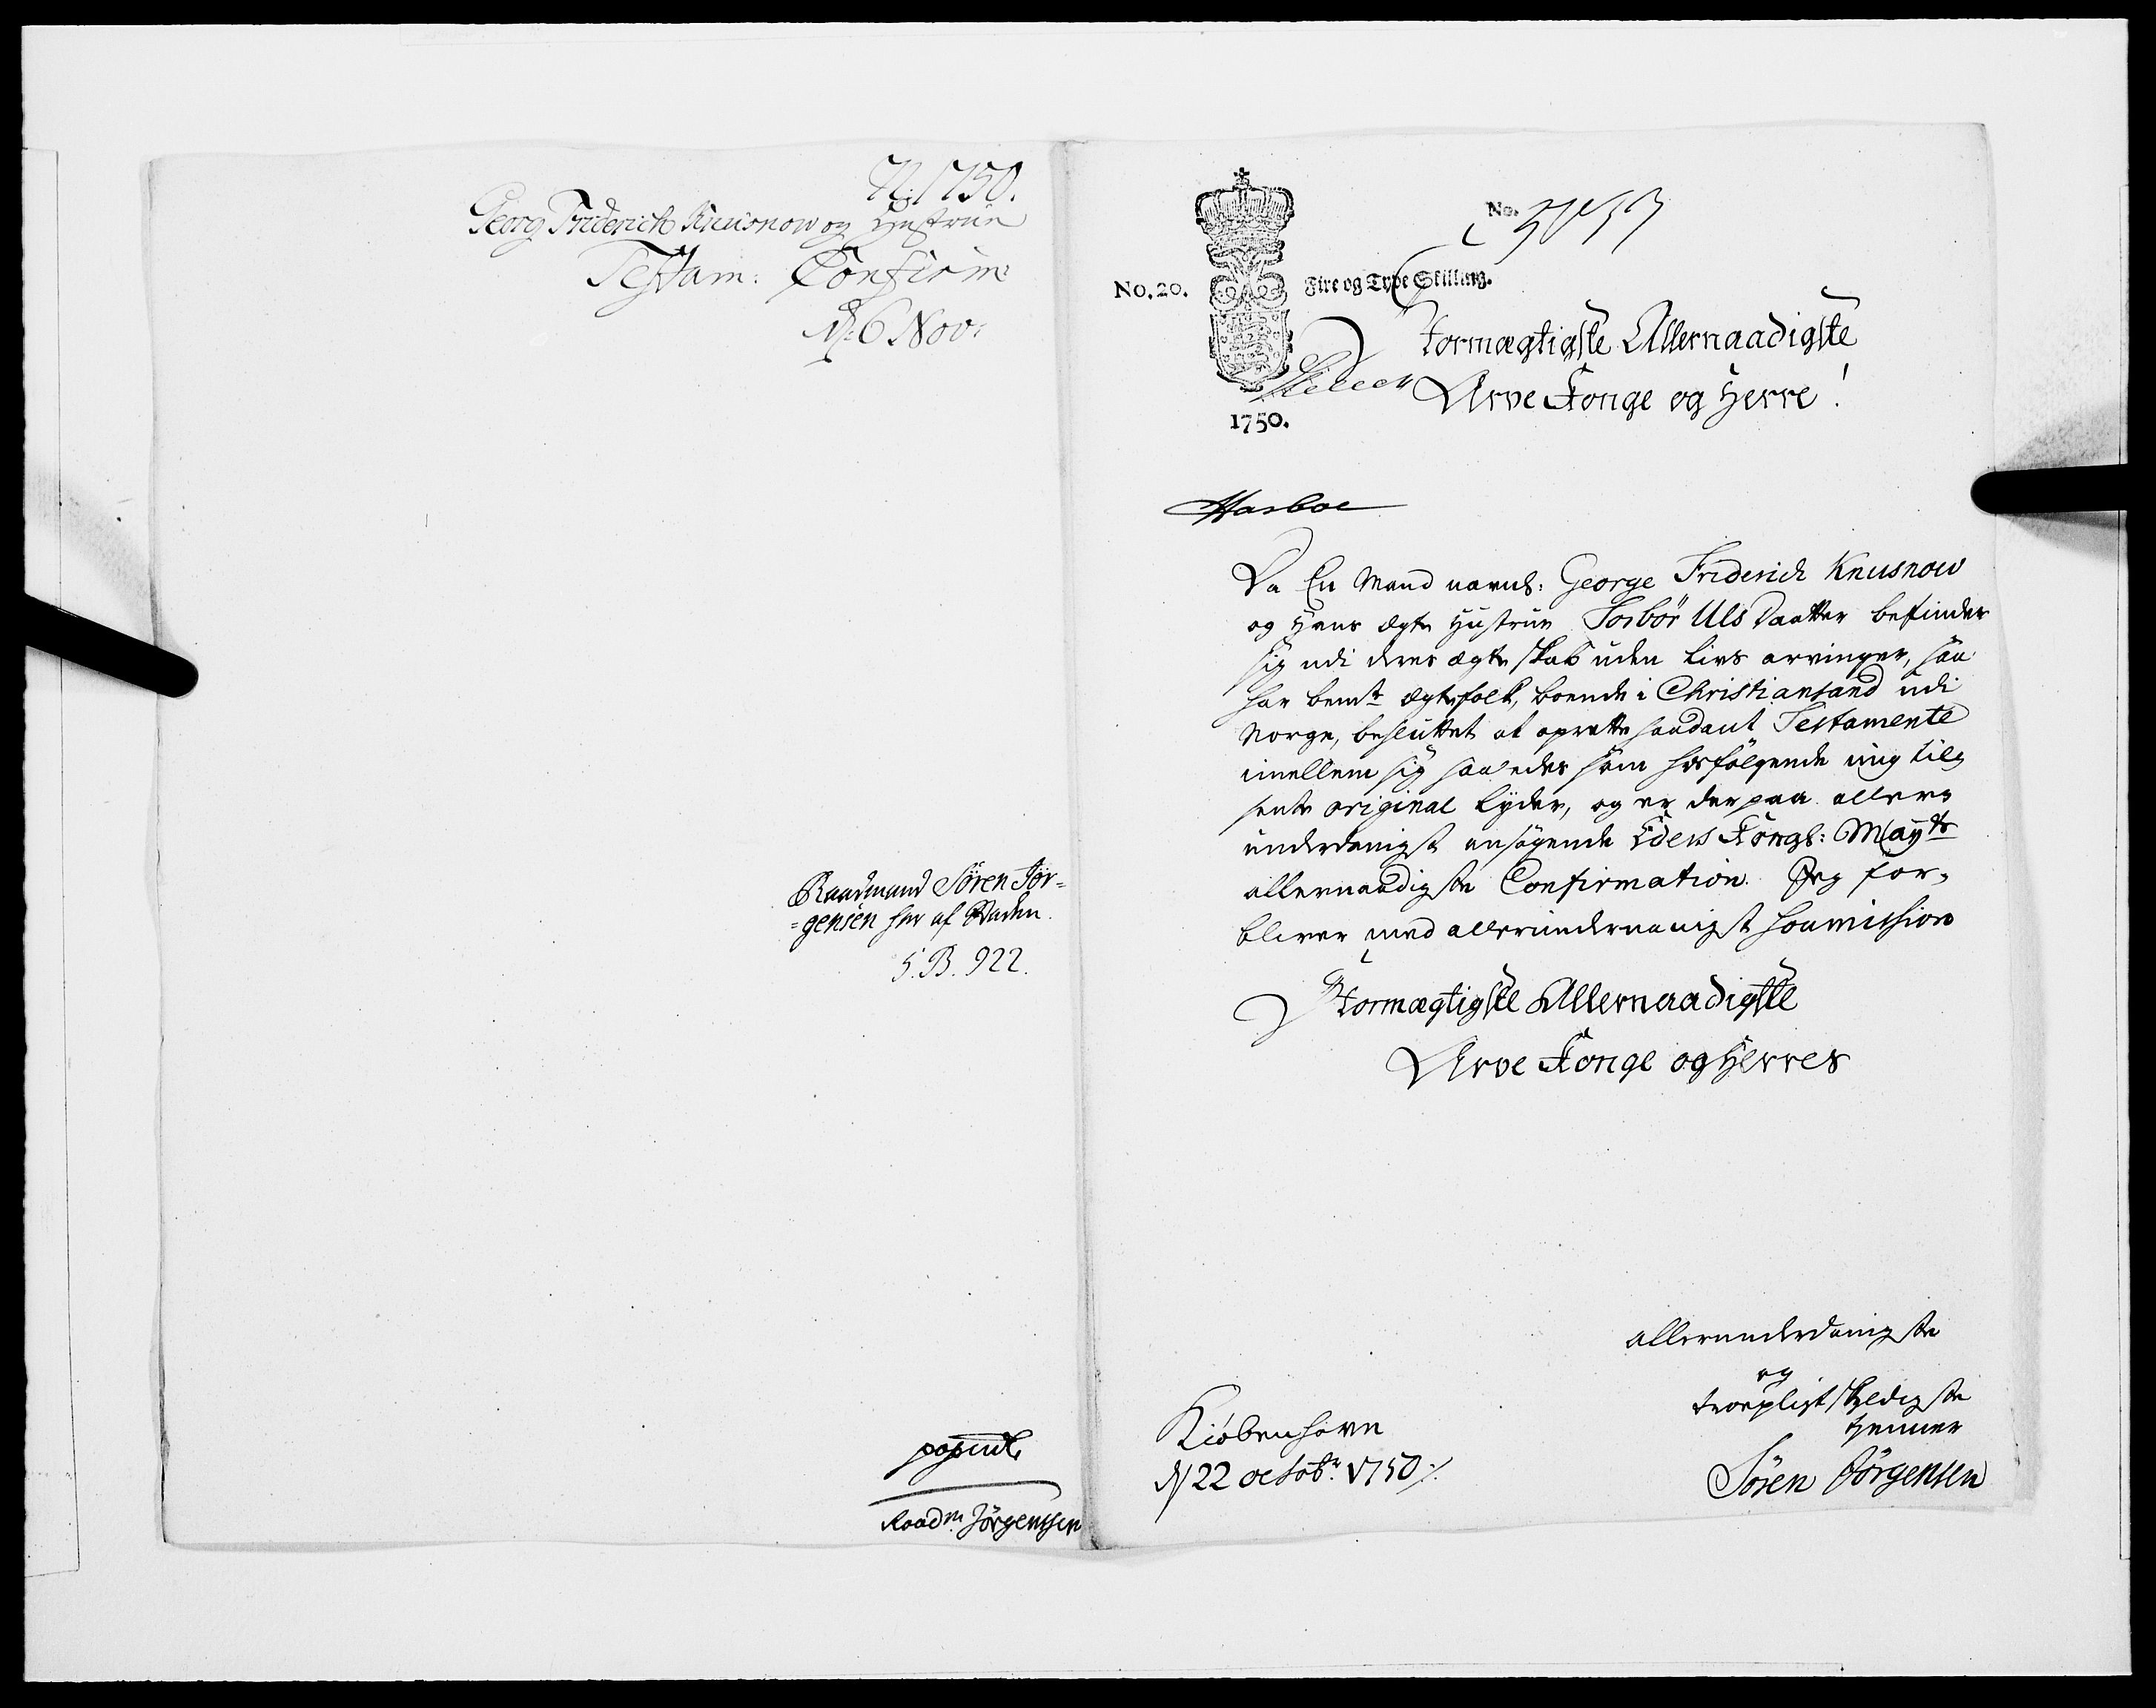 N: 1750.
Georg Friderich Knusnow og Hustrue
Testam: Confirm:
d: 6 Nov:
Raadmand Sören Jör=
=gensen her af Staden.
S. B. 922.
Raadm. Jörgenssen
No.
No. 20.
Fire og Tyve Skilling.
1750.
Stormægtigste Allernaadigste
Arve Konge og Herre!
Da En Mand navnl: George Friderich Knusnow
og Hans ægte Hustrue Torbör Uls Daatter befinder
sig udi deres ægteskab uden livs arvinger, saa
har bemte ægtefolk, boende i Christiansand udi
Norge, besluttet at oprette saadant Testamente
imellem sig saaledes som hosfölgende mig til=
sente original lyder, og er derpaa aller=
underdanigst ansögende Eders Kongl: Mayts
allernaadigste Confirmation. Jeg for=
bliver med allerunderdanigst soumission
Stormægtigste Allernaadigste
Arve Konge og Herres
allerunderdanigste
og
troepligtskyldigste
tjenner
Sören Jörgensen
Kiöbenhavn
d 22 octobr: 1750